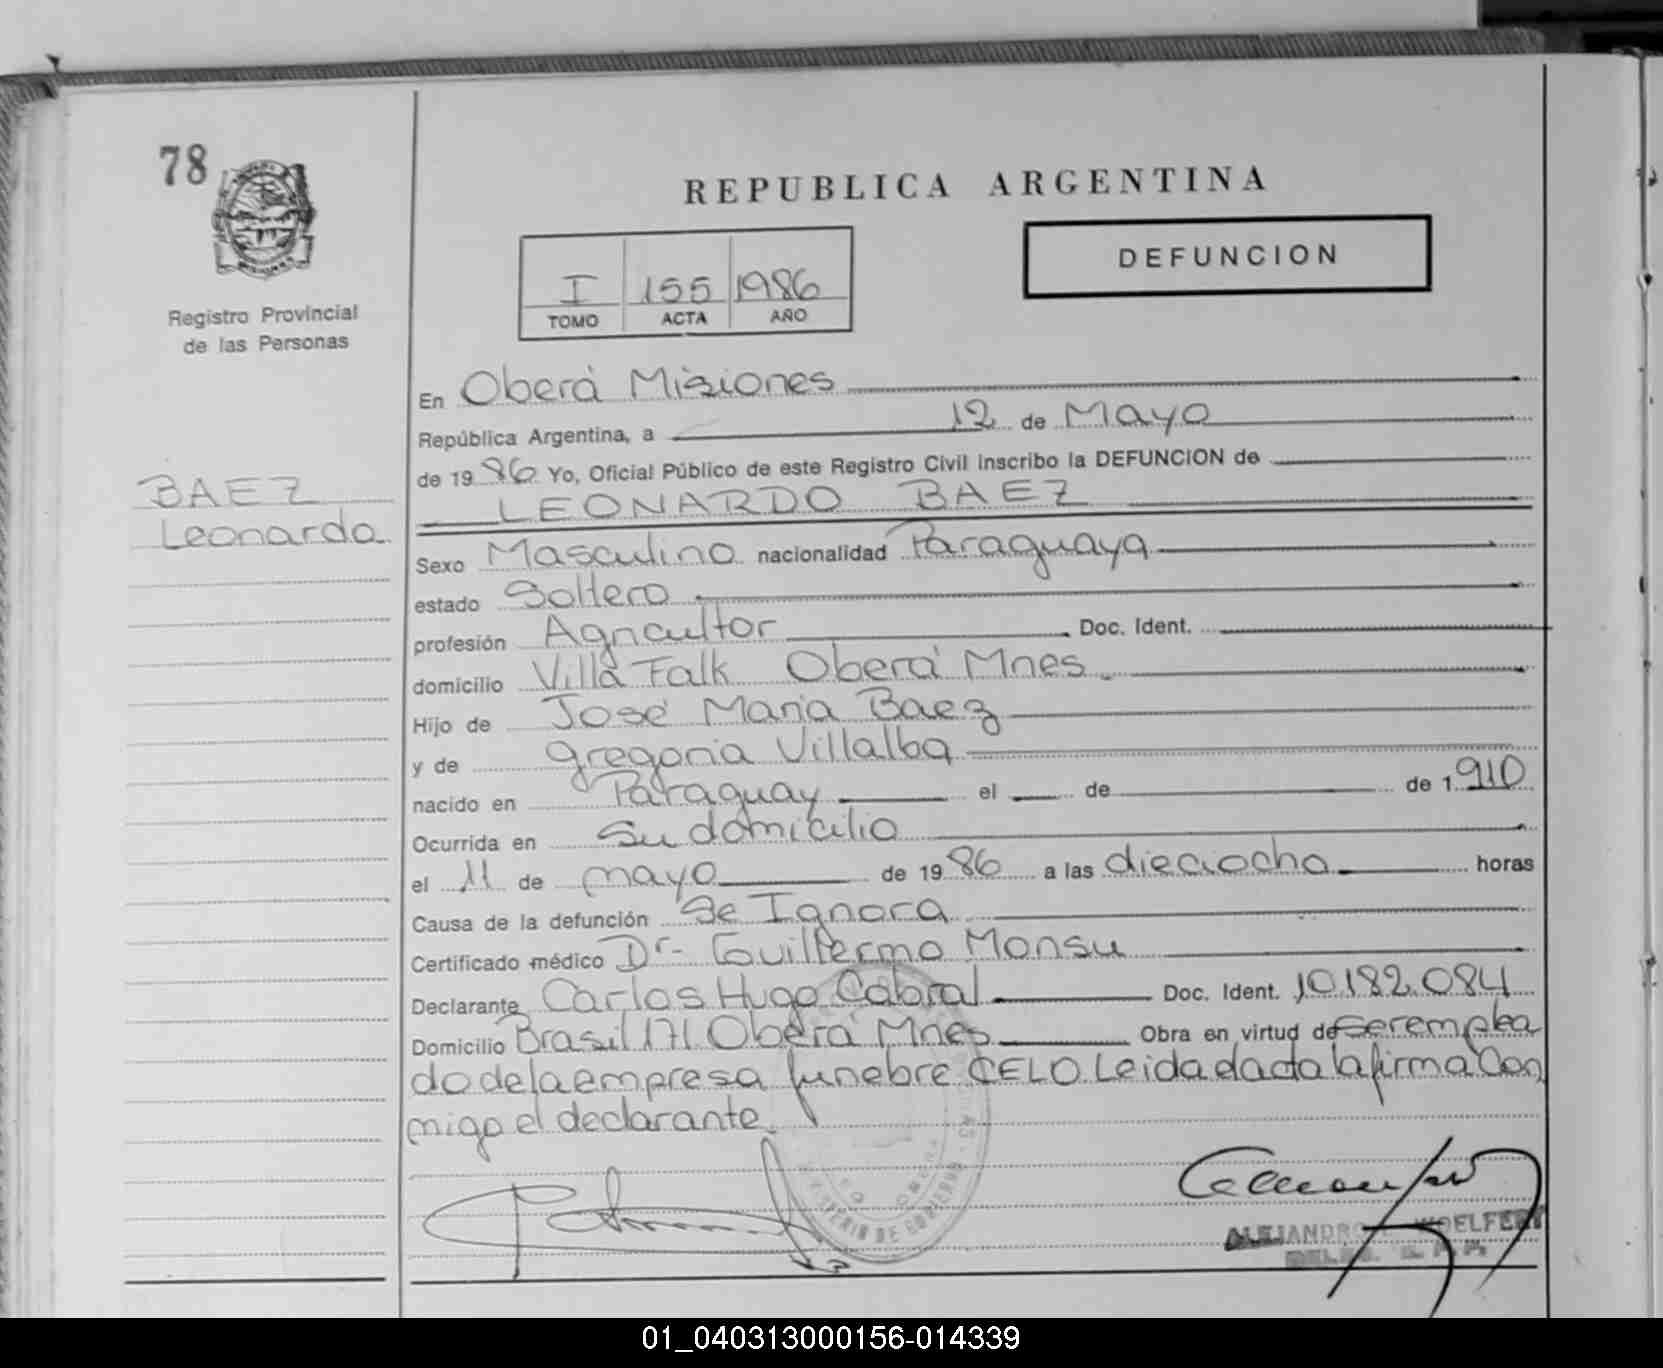 78
Registro Provincial
de las Personas
BAEZ
Leonardo
REPUBLICA ARGENTINA
I 155 1986
TOMO ACTA AÑO
DEFUNCION
En Oberá Misiones
República Argentina, a 12 de Mayo
de 1986 Yo, Oficial Público de este Registro Civil inscribo la DEFUNCION de
LEONARDO BAEZ
Sexo Masculino nacionalidad Paraguaya
estado Soltero
profesión Agricultor Doc. Ident.
domicilio Villa Falk Oberá Mnes
Hijo de José Maria Baez
y de Gregoria Villalba
nacido en Paraguay el de de 1910
Ocurrida en Su domicilio
el 11 de mayo de 1986 a las dieciocho horas
Causa de la defunción Se Ignora
Certificado médico Dr- Guillermo Monsu
Declarante Carlos Hugo Cabral Doc. Ident. 10.182.084
Domicilio Brasil 171 Oberá Mnes Obra en virtud de ser emplea
do de la empresa funebre CELO. Leida el acta la firma Con
migo el declarante.
MINISTERIO DE GOBIERNO
ALEJANDRO WOELFERT
01_040313000156-014339